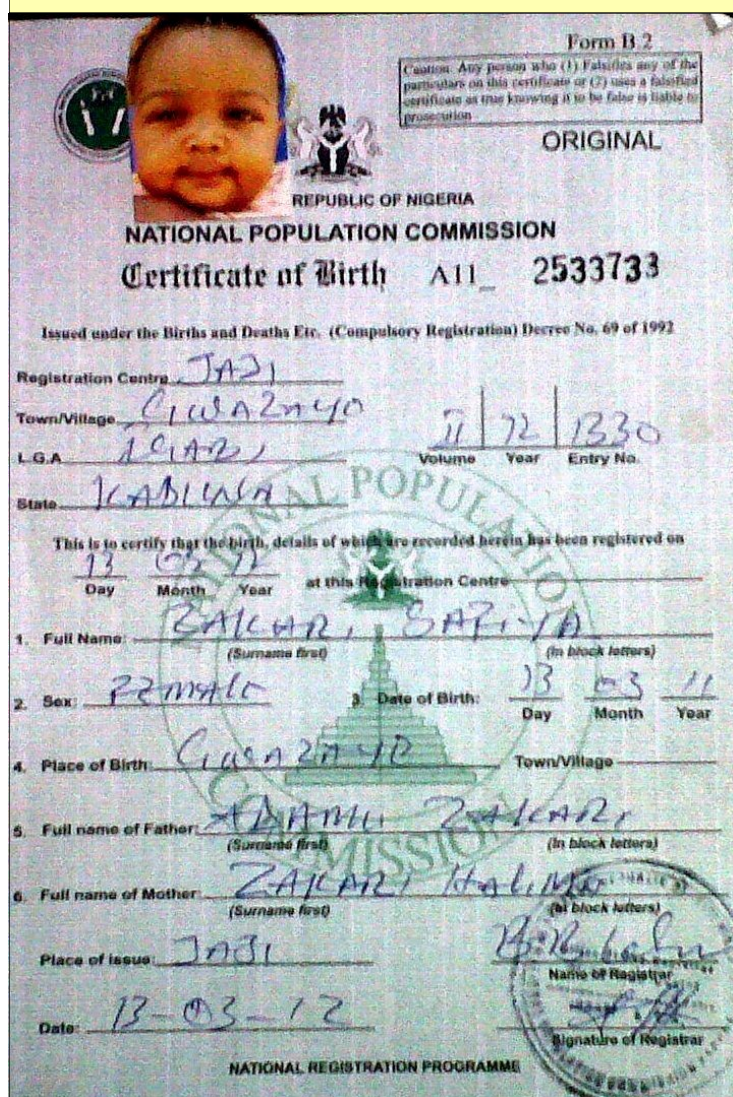 Form B.2
Caution: Any person who (1) Falsifies any of the
particulars on this certificate or (2) uses a falsified
certificate as true knowing it to be false is liable to
prosecution
ORIGINAL
REPUBLIC OF NIGERIA
NATIONAL POPULATION COMMISSION
Certificate of Birth A11_ 2533733
Issued under the Births and Deaths Etc. (Compulsory Registration) Decree No. 69 of 1992
Registration Centre JAJI
Town/Village
L.G.A IGABI
11 12 1330
Volume Year Entry No.
State KADUNA
NATIONAL POPULATION COMMISSION
This is to certify that the birth, details of which are recorded herein has been registered on
13 03 12 at this Registration Centre
Day Month Year
1. Full Name: ZAKARI SAFIYA
(Surname first) (in block letters)
2. Sex: FEMALE 3. Date of Birth: 13 03 11
Day Month Year
4. Place of Birth: Town/Village
5. Full name of Father: ADAMU ZAKARI
(Surname first) (in block letters)
6. Full name of Mother: ZAKARI HALIMA
(Surname first) (in block letters)
Place of issue: JAJI
Name of Registrar
Date: 13-03-12
Signature of Registrar
NATIONAL REGISTRATION PROGRAMME